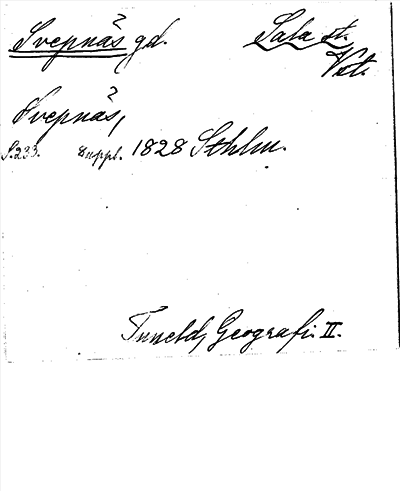 Svepnäs gd. Sala st.
Vstl.
Svepnäs,
S. 233. suppl. 1828 Sthlm.
Tuneld, Geografi. II.